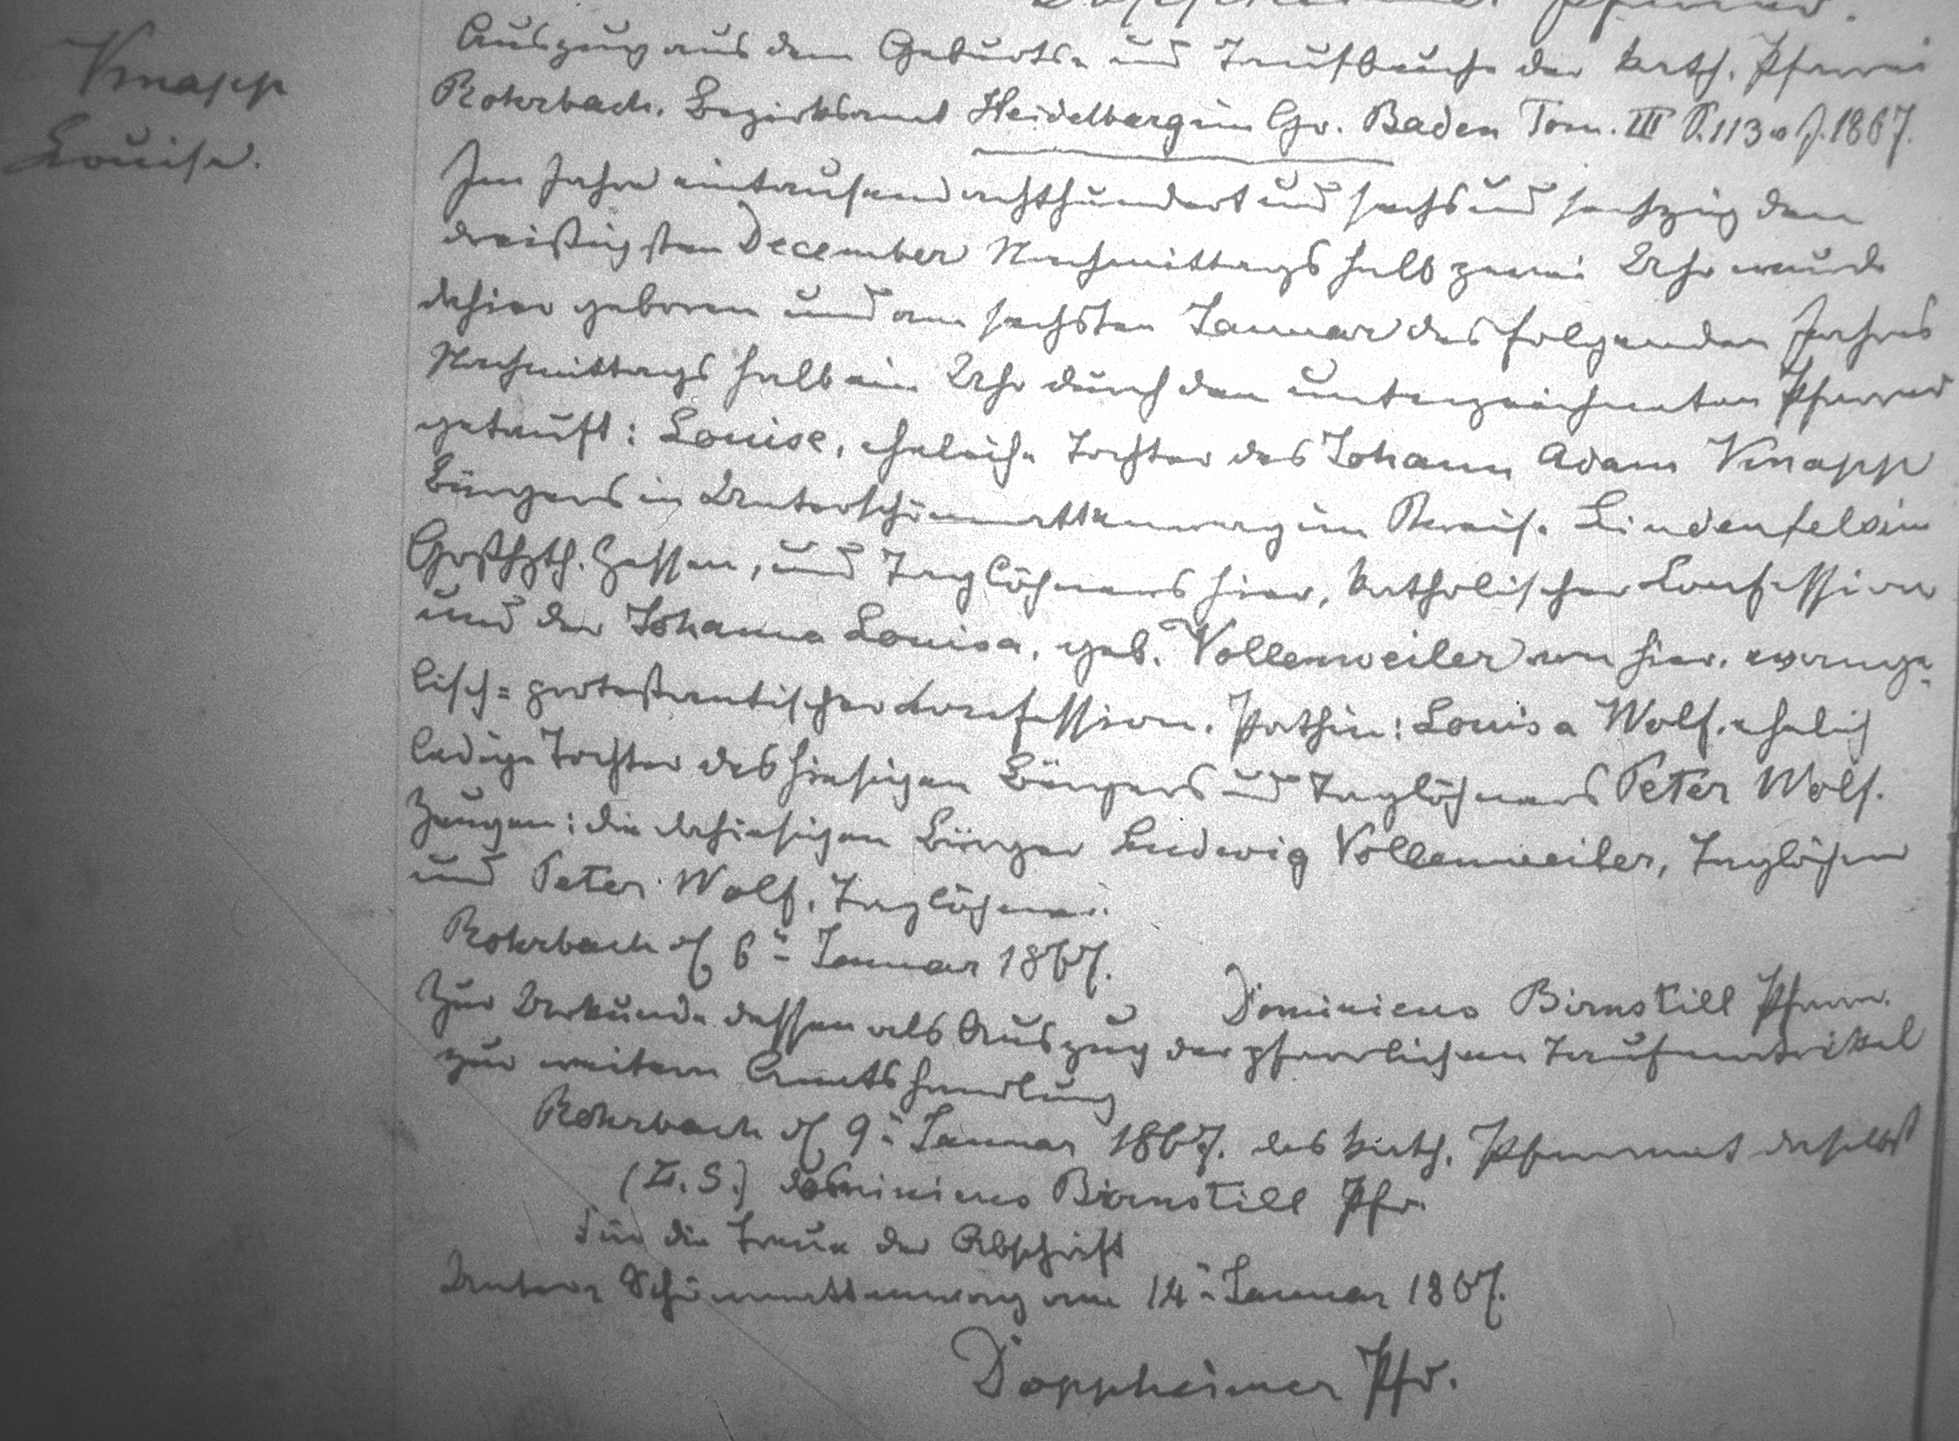 Doppheimer Pfarrer.
Knapp
Louise.
Auszug aus dem Geburts- und Taufbuche der kath. Pfarrei
Rohrbach, Bezirksamt Heidelberg im Gr. Baden Tom. III P. 113 v J. 1867.
Im Jahre eintausend achthundert und sechs und sechzig den
dreißigsten December Nachmittags halb zwei Uhr wurde
dahier geboren und am sechsten Januar des folgenden Jahres
Nachmittags halb ein Uhr durch den unterzeichneten Pfarrer
getauft: Louise, eheliche Tochter des Johann Adam Knapp
Bürgers in Unterschönmattenwag im Kreise Lindenfels im
Großhzth. Hessen, und Taglöhners hier, katholischer Confession
und der Johanna Louisa, geb. Vollenweiler von hier, evange-
lisch=protestantischer Confession. Pathin: Louisa Wolf, ehelich
ledige Tochter des hiesigen Bürgers und Taglöhners Peter Wolf.
Zeugen: die dahiesigen Bürger Ludwig Vollenweiler, Taglöhner
und Peter Wolf, Taglöhner.
Rohrbach d 6n Januar 1867.
Dominicus Birnstill Pfarr.
Zur Urkunde dessen als Auszug der pfarrlichen Taufmatrikel
zur weitern Amtshandlung
Rohrbach d 9n Januar 1867. das kath. Pfarramt daselbst
(L.S.) Dominicus Birnstill Pfr.
Für die Treue der Abschrift
Unter Schönmattenwag am 14n Januar 1867.
Doppheimer Pfr.